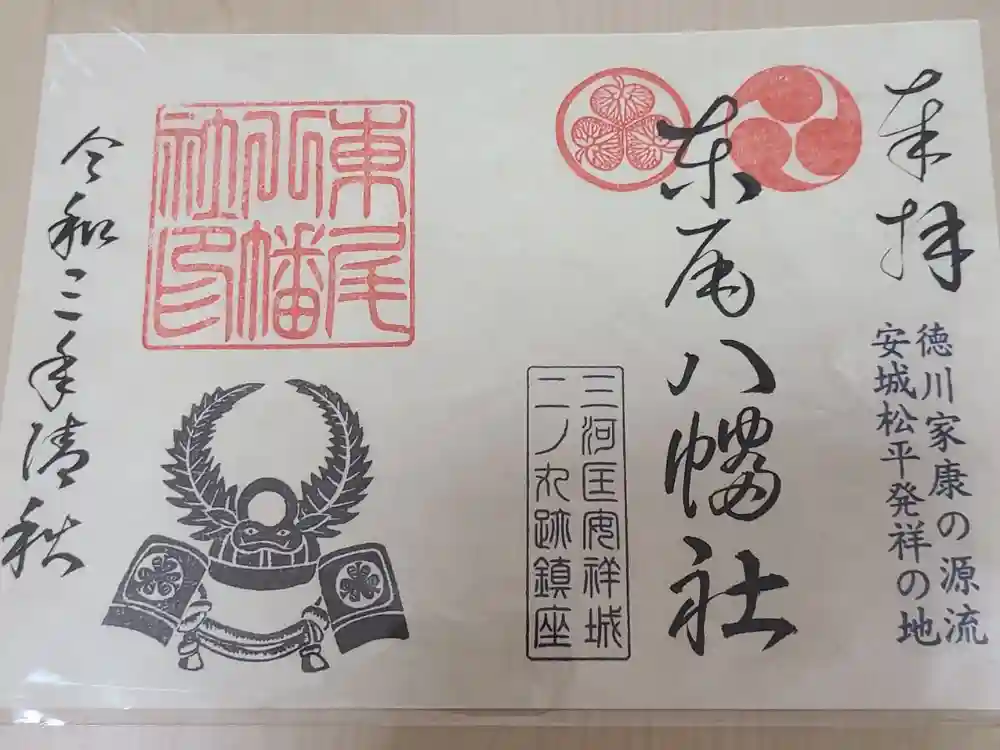 奉拝
徳川家康の源流
安城松平発祥の地
东尾八幡社
三河国安祥城
二ノ丸跡鎮座
東尾
八幡
社印
令和二年清秋